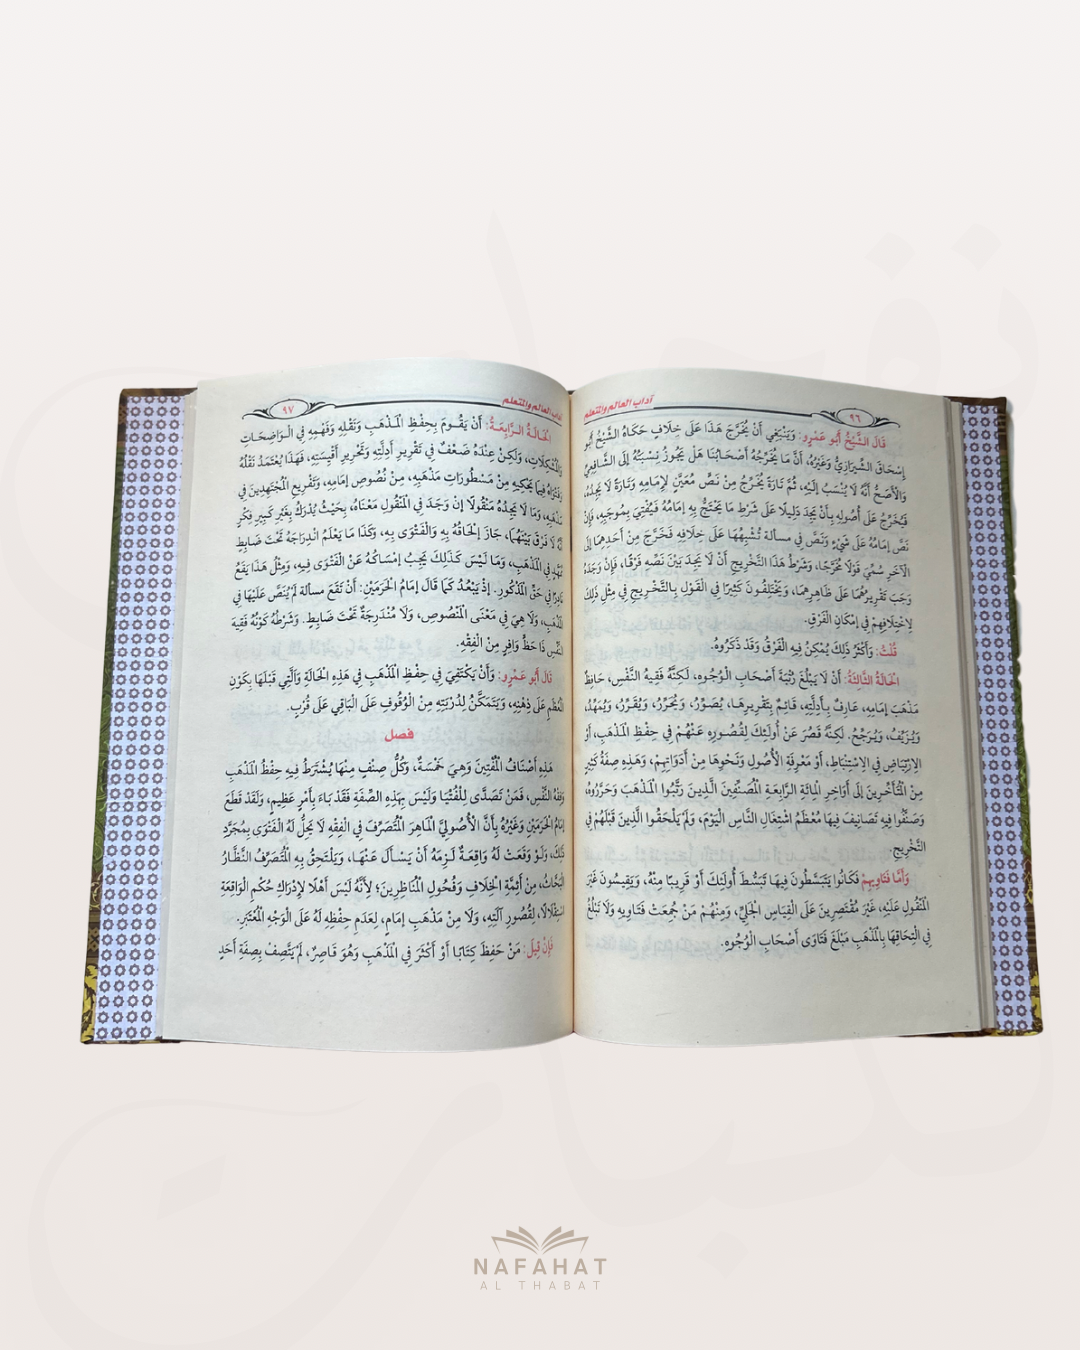 آداب العالم والمتعلم
٩٦
قَالَ الشَّيْخُ أَبُو عَمْرٍو: وَيَنْبَغِي أَنْ يُخَرَّجَ هَذَا عَلَى خِلَافٍ حَكَاهُ الشَّيْخُ أَبُو
إِسْحَاقَ الشِّيرَازِيُّ وَغَيْرُهُ، أَنَّ مَا يُخَرِّجُهُ أَصْحَابُنَا هَلْ يَجُوزُ نِسْبَتُهُ إِلَى الشَّافِعِيِّ
وَالْأَصَحُّ أَنَّهُ لَا يُنْسَبُ إِلَيْهِ، ثُمَّ تَارَةً يُخَرِّجُ مِنْ نَصٍّ مُعَيَّنٍ لِإِمَامِهِ وَتَارَةً لَا يَجِدُهُ،
فَيُخَرِّجُ عَلَى أُصُولِهِ بِأَنْ يَجِدَ دَلِيلًا عَلَى شَرْطِ مَا يَحْتَجُّ بِهِ إِمَامُهُ فَيُفْتِي بِمُوجَبِهِ، فَإِنْ
نَصَّ إِمَامُهُ عَلَى شَيْءٍ وَنَصَّ فِي مسألة تُشْبِهُهَا عَلَى خِلَافِهِ فَخَرَّجَ مِنْ أَحَدِهِمَا إِلَى
الْآخَرِ سُمِّيَ قَوْلًا مُخَرَّجًا، وَشَرْطُ هَذَا التَّخْرِيجِ أَنْ لَا يَجِدَ بَيْنَ نَصَّيْهِ فَرْقًا، فَإِنْ وَجَدَهُ
وَجَبَ تَقْرِيرُهُمَا عَلَى ظَاهِرِهِمَا، وَيَخْتَلِفُونَ كَثِيرًا فِي الْقَوْلِ بِالتَّخْرِيجِ فِي مِثْلِ ذَلِكَ
لِاخْتِلَافِهِمْ فِي إِمْكَانِ الْفَرْقِ.
قُلْتُ: وَأَكْثَرُ ذَلِكَ يُمْكِنُ فِيهِ الْفَرْقُ وَقَدْ ذَكَرُوهُ.
الْحَالَةُ الثَّالِثَةُ: أَنْ لَا يَبْلُغَ رُتْبَةَ أَصْحَابِ الْوُجُوهِ، لَكِنَّهُ فَقِيهُ النَّفْسِ، حَافِظٌ
مَذْهَبَ إِمَامِهِ، عَارِفٌ بِأَدِلَّتِهِ، قَائِمٌ بِتَقْرِيرِهَا، يُصَوِّرُ، وَيُحَرِّرُ، وَيُقَرِّرُ، وَيُمَهِّدُ،
وَيُزَيِّفُ، وَيُرَجِّحُ. لَكِنَّهُ قَصُرَ عَنْ أُولَئِكَ لِقُصُورِهِ عَنْهُمْ فِي حِفْظِ الْمَذْهَبِ، أَوِ
الِارْتِيَاضِ فِي الِاسْتِنْبَاطِ، أَوْ مَعْرِفَةِ الْأُصُولِ وَنَحْوِهَا مِنْ أَدَوَاتِهِمْ، وَهَذِهِ صِفَةُ كَثِيرٍ
مِنْ الْمُتَأَخِّرِينَ إِلَى أَوَاخِرِ الْمِائَةِ الرَّابِعَةِ الْمُصَنِّفِينَ الَّذِينَ رَتَّبُوا الْمَذْهَبَ وَحَرَّرُوهُ،
وَصَنَّفُوا فِيهِ تَصَانِيفَ فِيهَا مُعْظَمُ اشْتِغَالِ النَّاسِ الْيَوْمَ، وَلَمْ يَلْحَقُوا الَّذِينَ قَبْلَهُمْ فِي
التَّخْرِيجِ.
وَأَمَّا فَتَاوِيهِمْ فَكَانُوا يَتَبَسَّطُونَ فِيهَا تَبَسُّطَ أُولَئِكَ أَوْ قَرِيبًا مِنْهُ، وَيَقِيسُونَ غَيْرَ
الْمَنْقُولِ عَلَيْهِ، غَيْرَ مُقْتَصِرِينَ عَلَى الْقِيَاسِ الْجَلِيِّ، وَمِنْهُمْ مَنْ جُمِعَتْ فَتَاوِيهِ وَلَا تَبْلُغُ
فِي الْتِحَاقِهَا بِالْمَذْهَبِ مَبْلَغَ فَتَاوَى أَصْحَابِ الْوُجُوهِ.
آداب العالم والمتعلم
٩٧
الْحَالَةُ الرَّابِعَةُ: أَنْ يَقُومَ بِحِفْظِ الْمَذْهَبِ وَنَقْلِهِ وَفَهْمِهِ فِي الْوَاضِحَاتِ
وَالْمُشْكِلَاتِ، وَلَكِنْ عِنْدَهُ ضَعْفٌ فِي تَقْرِيرِ أَدِلَّتِهِ وَتَحْرِيرِ أَقْيِسَتِهِ، فَهَذَا يُعْتَمَدُ نَقْلُهُ
وَفَتْوَاهُ فِيمَا يَحْكِيهِ مِنْ مَسْطُورَاتِ مَذْهَبِهِ، مِنْ نُصُوصِ إِمَامِهِ، وَتَفْرِيعِ الْمُجْتَهِدِينَ فِي
مَذْهَبِهِ، وَمَا لَا يَجِدُهُ مَنْقُولًا إِنْ وَجَدَ فِي الْمَنْقُولِ مَعْنَاهُ، بِحَيْثُ يُدْرَكُ بِغَيْرِ كَبِيرِ فِكْرٍ
أَنَّهُ لَا فَرْقَ بَيْنَهُمَا، جَازَ إِلْحَاقُهُ بِهِ وَالْفَتْوَى بِهِ، وَكَذَا مَا يَعْلَمُ انْدِرَاجَهُ تَحْتَ ضَابِطٍ
مُمَهَّدٍ فِي الْمَذْهَبِ، وَمَا لَيْسَ كَذَلِكَ يَجِبُ إِمْسَاكُهُ عَنْ الْفَتْوَى فِيهِ، وَمِثْلُ هَذَا يَقَعُ
نَادِرًا فِي حَقِّ الْمَذْكُورِ. إِذْ يَبْعُدُ كَمَا قَالَ إِمَامُ الْحَرَمَيْنِ: أَنْ تَقَعَ مسألة لَمْ يُنَصَّ عَلَيْهَا فِي
الْمَذْهَبِ، وَلَا هِيَ فِي مَعْنَى الْمَنْصُوصِ، وَلَا مُنْدَرِجَةٌ تَحْتَ ضَابِطٍ. وَشَرْطُهُ كَوْنُهُ فَقِيهَ
النَّفْسِ ذَا حَظٍّ وَافِرٍ مِنْ الْفِقْهِ.
قَالَ أَبُو عَمْرٍو: وَأَنْ يَكْتَفِيَ فِي حِفْظِ الْمَذْهَبِ فِي هَذِهِ الْحَالَةِ وَالَّتِي قَبْلَهَا بِكَوْنِ
الْمُعْظَمِ عَلَى ذِهْنِهِ، وَيَتَمَكَّنُ لِدُرْبَتِهِ مِنْ الْوُقُوفِ عَلَى الْبَاقِي عَلَى قُرْبٍ.
فصل
هَذِهِ أَصْنَافُ الْمُفْتِينَ وَهِيَ خَمْسَةٌ، وَكُلُّ صِنْفٍ مِنْهَا يُشْتَرَطُ فِيهِ حِفْظُ الْمَذْهَبِ
وَفِقْهُ النَّفْسِ، فَمَنْ تَصَدَّى لِلْفُتْيَا وَلَيْسَ بِهَذِهِ الصِّفَةِ فَقَدْ بَاءَ بِأَمْرٍ عَظِيمٍ، وَلَقَدْ قَطَعَ
إِمَامُ الْحَرَمَيْنِ وَغَيْرُهُ بِأَنَّ الْأُصُولِيَّ الْمَاهِرَ الْمُتَصَرِّفَ فِي الْفِقْهِ لَا يَحِلُّ لَهُ الْفَتْوَى بِمُجَرَّدِ
ذَلِكَ، وَلَوْ وَقَعَتْ لَهُ وَاقِعَةٌ لَزِمَهُ أَنْ يَسْأَلَ عَنْهَا، وَيَلْتَحِقُ بِهِ الْمُتَصَرِّفُ النَّظَّارُ
الْبَحَّاثُ، مِنْ أَئِمَّةِ الْخِلَافِ وَفُحُولِ الْمُنَاظِرِينَ؛ لِأَنَّهُ لَيْسَ أَهْلًا لِإِدْرَاكِ حُكْمِ الْوَاقِعَةِ
اسْتِقْلَالًا، لِقُصُورِ آلَتِهِ، وَلَا مِنْ مَذْهَبِ إِمَامٍ، لِعَدَمِ حِفْظِهِ لَهُ عَلَى الْوَجْهِ الْمُعْتَبَرِ.
فَإِنْ قِيلَ: مَنْ حَفِظَ كِتَابًا أَوْ أَكْثَرَ فِي الْمَذْهَبِ وَهُوَ قَاصِرٌ، لَمْ يَتَّصِفْ بِصِفَةِ أَحَدٍ
NAFAHAT
AL THABAT